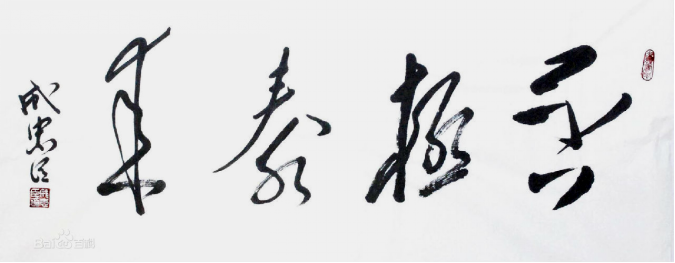 否极泰来
成忠臣
Baidu百科